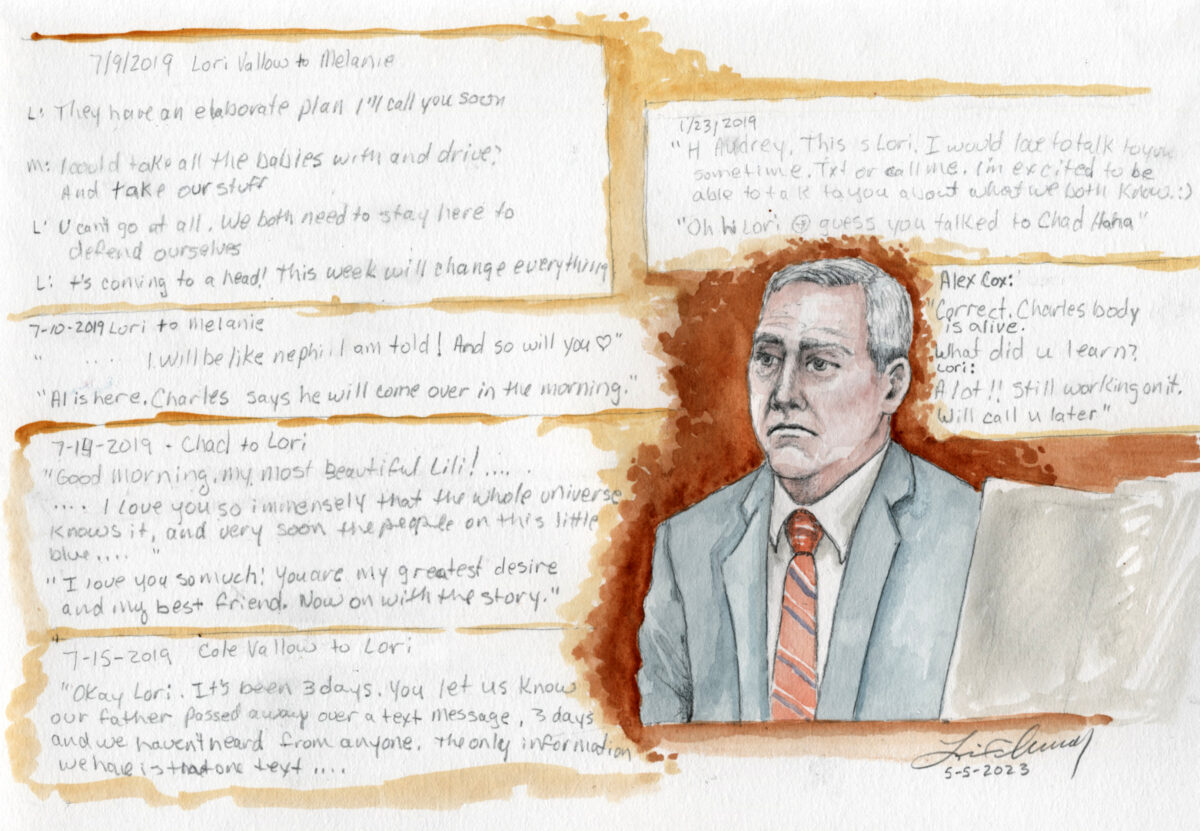 7/9/2019 Lori Vallow to Melanie
L: They have an elaborate plan I'll call you soon
M: I could take all the babies with and drive?
And take our stuff
L: U can't go at all. We both need to stay here to
defend ourselves
L: t's coming to a head! This week will change everything
7-10-2019 Lori to Melanie
" .... I will be like nephi I am told! And so will you ♡"
"Al is here. Charles says he will come over in the morning."
7-14-2019 - Chad to Lori
"Good morning, my most beautiful Lili! .....
.... I love you so immensely that the whole universe
knows it, and very soon the people on this little
blue .... "
"I love you so much! You are my greatest desire
and my best friend. Now on with the story."
7-15-2019 Cole Vallow to Lori
"Okay Lori. It's been 3 days. You let us know
our father passed away over a text message, 3 days
and we haven't heard from anyone. The only information
we have is that one text ....
1/23/2019
"H Audrey, This is Lori. I would love to talk to you
sometime. Txt or call me. I'm excited to be
able to talk to you about what we both know. :)
"Oh hi Lori guess you talked to Chad Haha"
Alex Cox:
"Correct. Charles body
is alive.
What did u learn?
Lori:
A lot!! Still working on it.
Will call u later"
5-5-2023